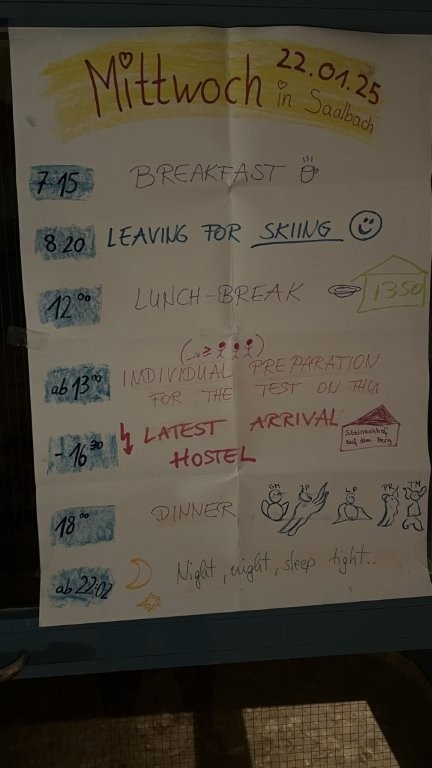 Mittwoch 22.01.25
in Saalbach
7:15 BREAKFAST
8:20 LEAVING FOR SKIING
12:00 LUNCH-BREAK 1350
ab 13:00 INDIVIDUAL PREPARATION
FOR THE TEST ON THU
- 16:30 LATEST ARRIVAL
HOSTEL
auf dem Berg
18:00 DINNER
GM LP PR TM
ab 22:02 Night, night, sleep tight...